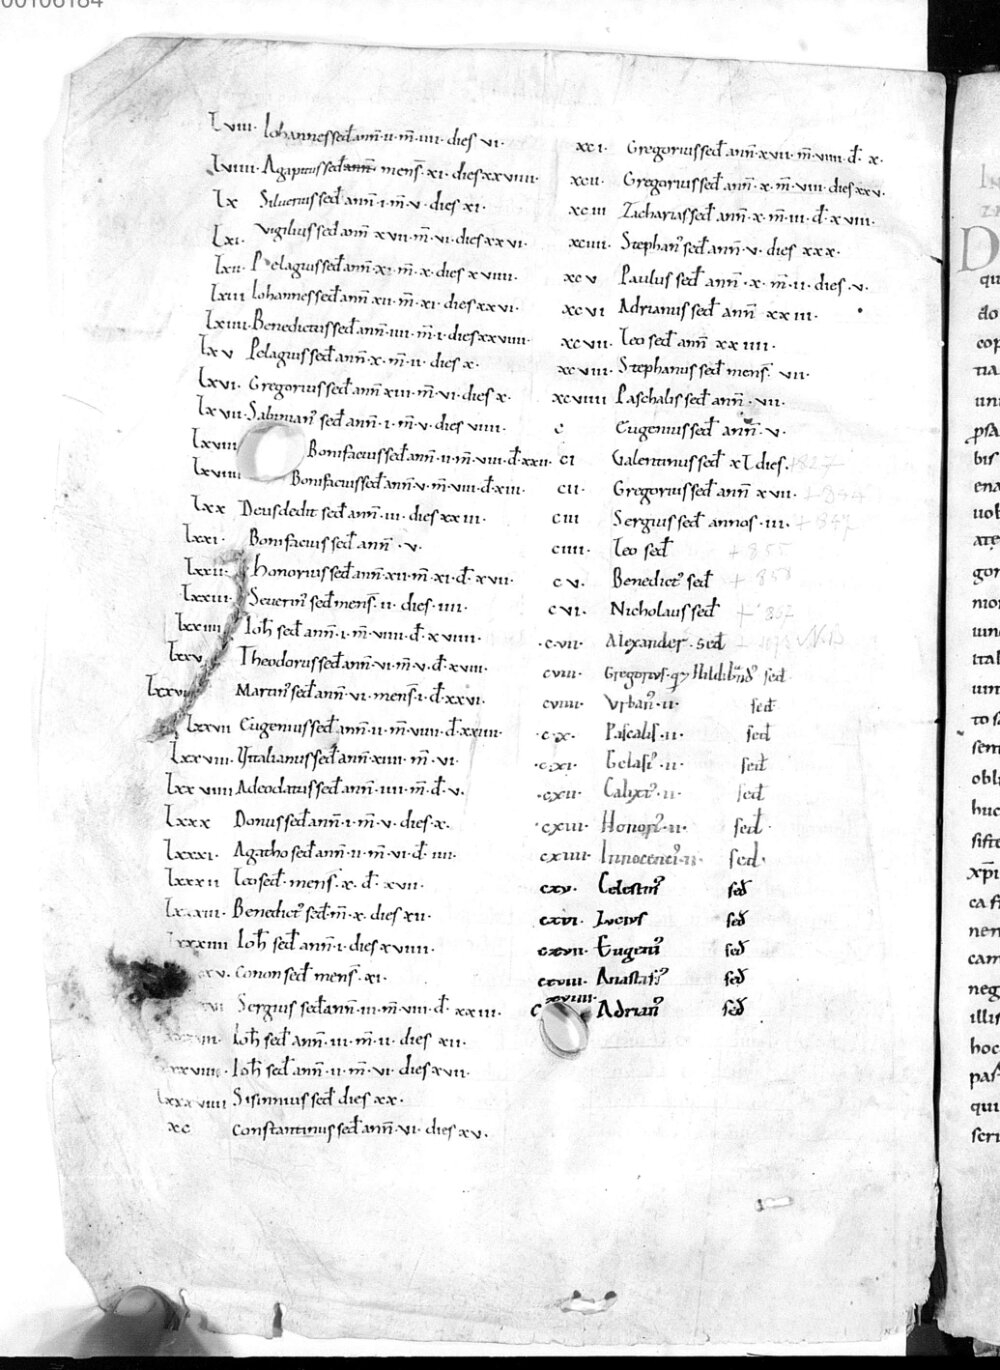 00106184
Lviii. Iohannes sed ann̄ ·ii· m̄ ·iiii· dies vi·
Lviiii· Agapitus sed ann̄ mens̄ ·xi· dies xxviiii·
Lx Siluerius sed ann̄ ·i· m̄ ·v· dies xi·
Lxi· Vigilius sed ann̄ xvii· m̄ ·vi· dies xxvi·
Lxii· Pelagius sed ann̄ xi· m̄ ·x· dies xviiii·
Lxiii Iohannes sed ann̄ xii· m̄ ·xi· dies xxvi·
Lxiiii· Benedictus sed ann̄ ·iiii· m̄ ·i· dies xxviiii·
Lxv Pelagius sed ann̄ ·x· m̄ ·ii· dies x·
Lxvi· Gregorius sed ann̄ xiii· m̄ ·vi· dies x·
Lxvii· Sabinian᾽ sed ann̄ ·i· m̄ ·v· dies viiii·
Lxviii Bonifacius sed ann̄ ·ii· m̄ ·viii· d̄· xxii·
Lxviiii Bonifacius sed ann̄ ·v· m̄ ·viii· d̄· xiii·
Lxx Deusdedit sed ann̄ ·iii· dies xxiii·
Lxxi· Bonifacius sed ann̄ ·v·
Lxxii· Honorius sed ann̄ ·xii· m̄ ·xi· d̄· xvii·
Lxxiii· Seuerin᾽ sed mens̄ ·ii· dies ·iiii·
Lxxiiii Ioh̄ sed ann̄ ·i· m̄ ·viiii· d̄· xviiii·
Lxxv Theodorus sed ann̄ ·vi· m̄ ·v· d̄· xviii·
Lxxvi Martin᾽ sed ann̄ ·vi· mens̄ ·i· d̄· xxvi·
Lxxvii Eugenius sed ann̄ ·ii· m̄ ·viiii· d̄· xxiiii·
Lxxviii· Vitalianus sed ann̄ ·xiiii· m̄ ·vi·
Lxxviiii Adeodatus sed ann̄ ·iiii· m̄ ·d̄· v·
Lxxx Donus sed ann̄ ·i· m̄ ·v· dies x·
Lxxxi· Agatho sed ann̄ ·ii· m̄ ·vi· d̄· iiii·
Lxxxii Leo sed· mens̄ ·x· d̄· xvii·
Lxxxiii· Benedict᾽ sed· m̄ ·x· dies xii·
Lxxxiiii Ioh̄ sed ann̄ ·i· dies xviiii·
xv· Conon sed mens̄ ·xi·
vi· Sergius sed ann̄ ·iii· m̄ ·viii· d̄· xxiii·
Ioh̄ sed ann̄ ·iii· m̄ ·ii· dies xii·
xxviii· Ioh̄ sed ann̄ ·ii· m̄ ·vi· dies xvii·
Lxxxviiii Sisinnius sed dies xx·
xc Constantinus sed ann̄ ·vi· dies xv·
xci· Gregorius sed ann̄ xvii· m̄ ·viiii· d̄· x·
xcii· Gregorius sed ann̄ ·x· m̄ ·viii· dies xxv·
xciii Zacharias sed ann̄ ·x· m̄ ·iii· d̄· xviii·
xciiii· Stephan᾽ sed ann̄ ·v· dies xxx·
xcv Paulus sed ann̄ ·x· m̄ ·ii· dies ·v·
xcvi Adrianus sed ann̄ xxiii·
xcvii· Leo sed ann̄ xxiiii·
xcviii· Stephanus sed mens̄ ·vii·
xcviiii Paschalis sed ann̄ ·vii·
c Eugenius sed ann̄ ·v·
ci Galentinus sed xL dies· 827
cii· Gregorius sed ann̄ xvii· + 844
ciii Sergius sed annos ·iii· + 847
ciiii· Leo sed + 855
cv· Benedict᾽ sed + 858
cvi· Nicholaus sed + 867
·cvii· Alexander· sed
cviii· Gregorius· sed
cviiii· Vrban᾽ ·ii· sed
·cx· Pascalis ·ii· sed
·cxi· Gelasi᾽ ·ii· sed
·cxii· Calixt᾽ ·ii· sed
·cxiii· Honori᾽ ·ii· sed·
cxiiii· Innocenci᾽ ·ii· sed·
cxv· Celestin᾽ sed
cxvi· Lucius sed
cxvii· Eugeni᾽ sed
cxviii· Anastasi᾽ sed
cxviiii· Adrian᾽ sed
D
qu
do
cop
tia
uni
psa
bis
ena
uob
atę
gor
mon
iun
ital
uin
to s
sem
obli
huc
sifte
xp̄i
ca fi
nen
cam
neg
illis
hoc
pas
qui
scri